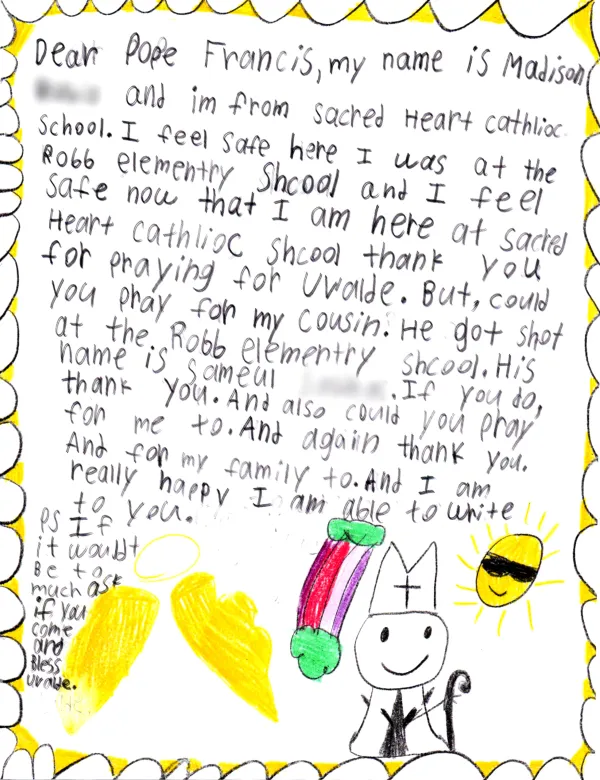 Dear Pope Francis, my name is Madison
and im from sacred Heart cathlioc
school. I feel safe here I was at the
Robb elementry Shcool and I feel
safe now that I am here at sacred
Heart cathlioc shcool thank you
for praying for uvalde. But, could
you pray for my cousin. He got shot
at the Robb elementry shcool. His
name is sameul . If you do,
thank you. And also could you pray
for me to. And again thank you.
And for my family to. And I am
really happy I am able to write
to you.
ps If
it wouldt
Be to
much ask
if you
come
and
Bless
uvalde.